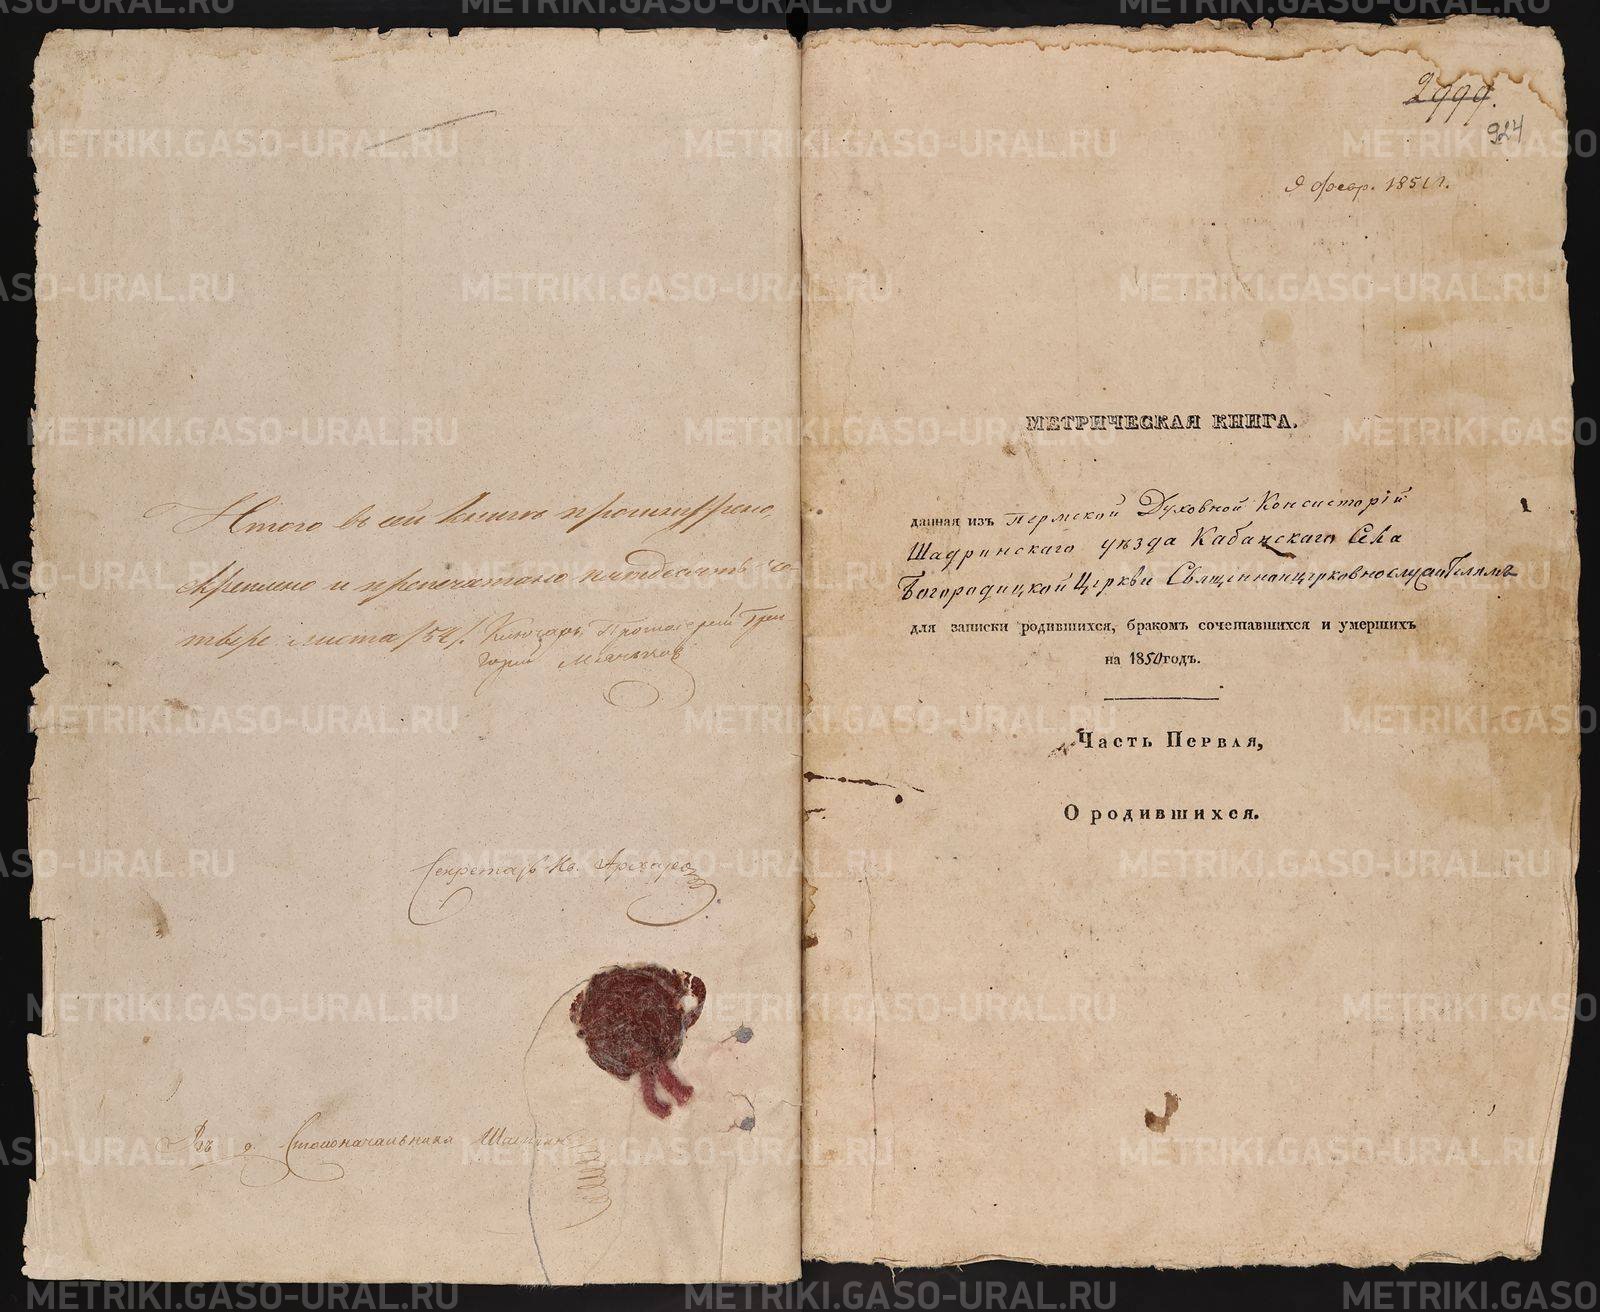 Итого въ сей книгѣ прошнурено,
скреплено и пропечатано пятдесятъ че-
тыре листа /54/. Ключарь Протоіерей Гри
горій
Секретарь Ив. Архаро
Въ д. Столоначальника
2999.
924
9 Февр. 1851 г.
МЕТРИЧЕСКАЯ КНИГА.
данная изъ Пермской Духовной Консисторіи
Шадринскаго уѣзда Кабанскаго Села
Богородицкой Церкви Священноцерковнослужителямъ
для записки родившихся, бракомъ сочетавшихся и умершихъ
на 1850 годъ.
Часть Первая,
О родившихся.
METRIKI.GASO-URAL.RU